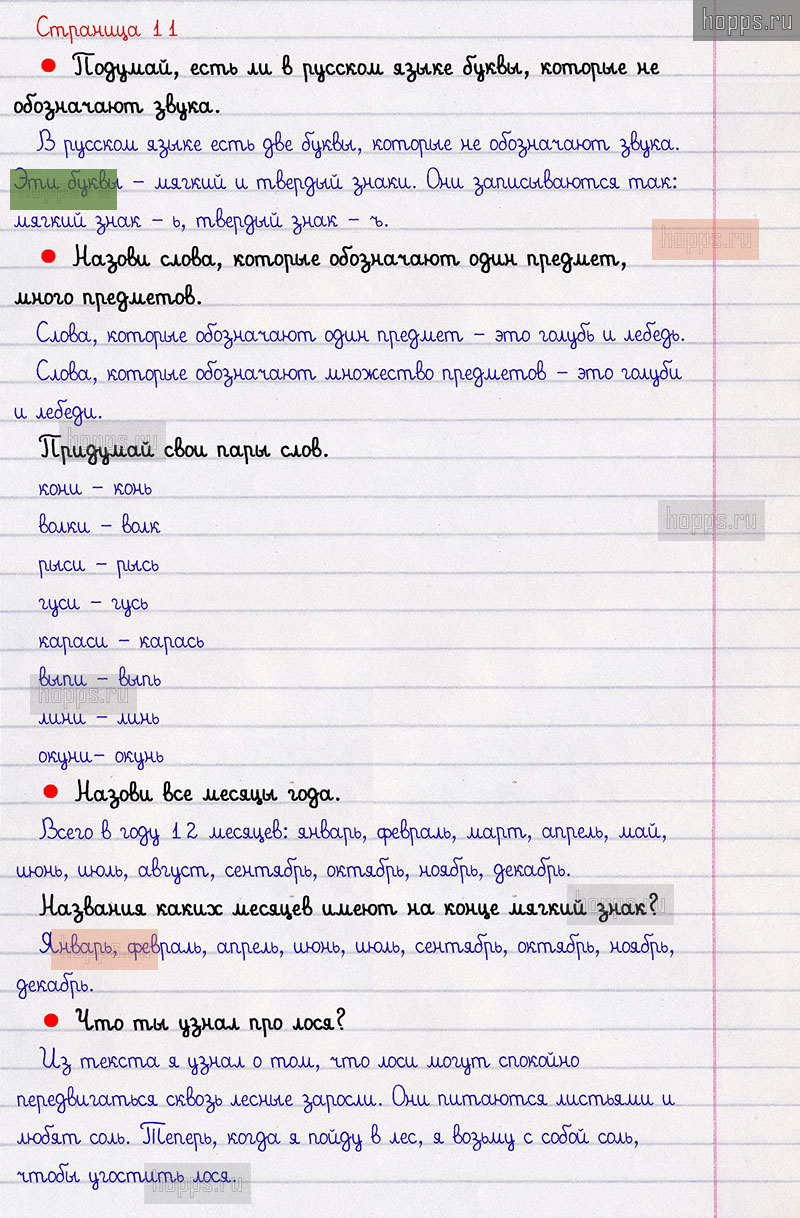 hopps.ru
Страница 11
Подумай, есть ли в русском языке буквы, которые не
обозначают звука.
В русском языке есть две буквы, которые не обозначают звука.
Эти буквы – мягкий и твердый знаки. Они записываются так:
hopps.ru
мягкий знак – ь, твердый знак – ъ.
hopps.ru
Назови слова, которые обозначают один предмет,
много предметов.
Слова, которые обозначают один предмет – это голубь и лебедь.
Слова, которые обозначают множество предметов – это голуби
и лебеди.
hopps.ru
Придумай свои пары слов.
кони – конь
волки – волк
hopps.ru
рыси – рысь
гуси – гусь
караси – карась
выпи – выпь
hopps.ru
лини – линь
окуни– окунь
Назови все месяцы года.
Всего в году 12 месяцев: январь, февраль, март, апрель, май,
июнь, июль, август, сентябрь, октябрь, ноябрь, декабрь.
Названия каких месяцев имеют на конце мягкий знак?
hopps.ru
Январь, февраль, апрель, июнь, июль, сентябрь, октябрь, ноябрь,
hopps.ru
декабрь.
Что ты узнал про лося?
Из текста я узнал о том, что лоси могут спокойно
передвигаться сквозь лесные заросли. Они питаются листьями и
любят соль. Теперь, когда я пойду в лес, я возьму с собой соль,
чтобы угостить лося.
hopps.ru